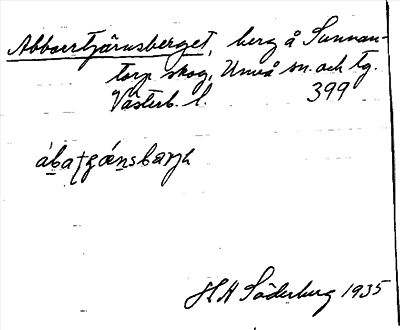 Abborrtjärnsberget, berg å Sunnan-
torp skog, Umeå sn. och tg.
Västerb. l. 399
H A Söderberg 1935